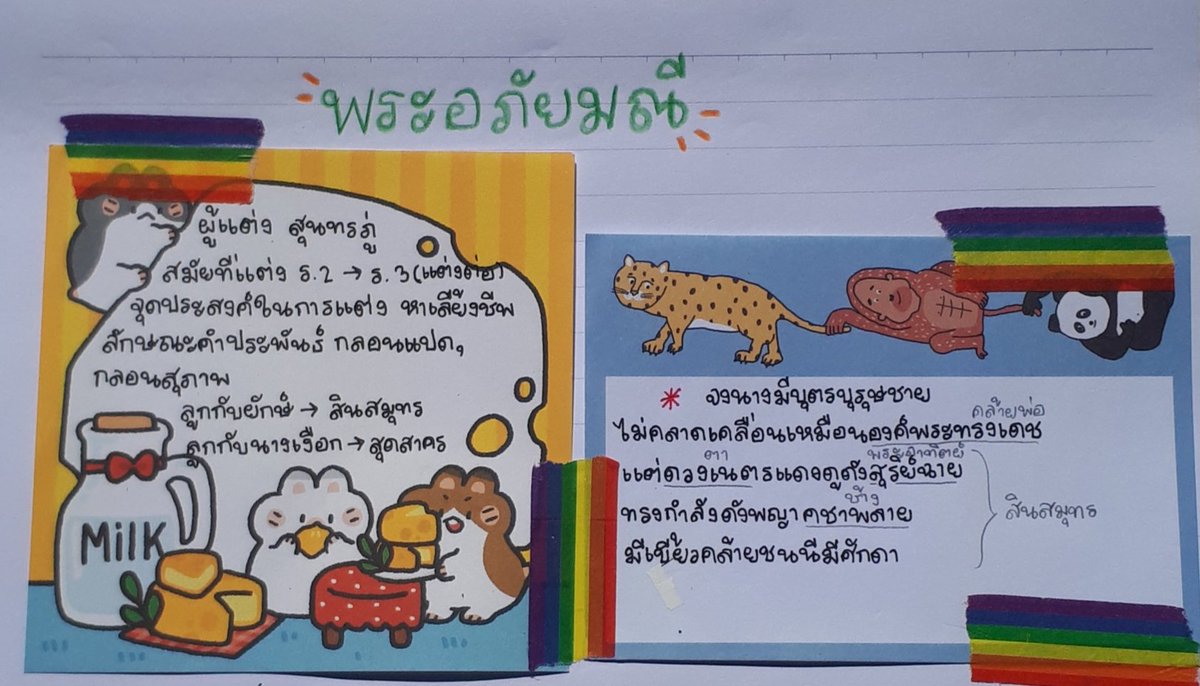 พระอภัยมณี
ผู้แต่ง สุนทรภู่
สมัยที่แต่ง ร.2 → ร.3 (แต่งต่อ)
จุดประสงค์ในการแต่ง หาเลี้ยงชีพ
ลักษณะคำประพันธ์ กลอนแปด,
กลอนสุภาพ
ลูกกับยักษ์ → สินสมุทร
ลูกกับนางเงือก → สุดสาคร
Milk
* จงนางมีบุตรบุรุษชาย
คล้ายพ่อ
ไม่คลาดเคลื่อนเหมือนองค์พระทรงเดช
ตา พระอาทิตย์
แต่ดวงเนตรแดงดูดังสุริย์ฉาย
ช้าง
ทรงกำลังดังพญาคชาพลาย
สินสมุทร
มีเขี้ยวคล้ายชนนีมีศักดา